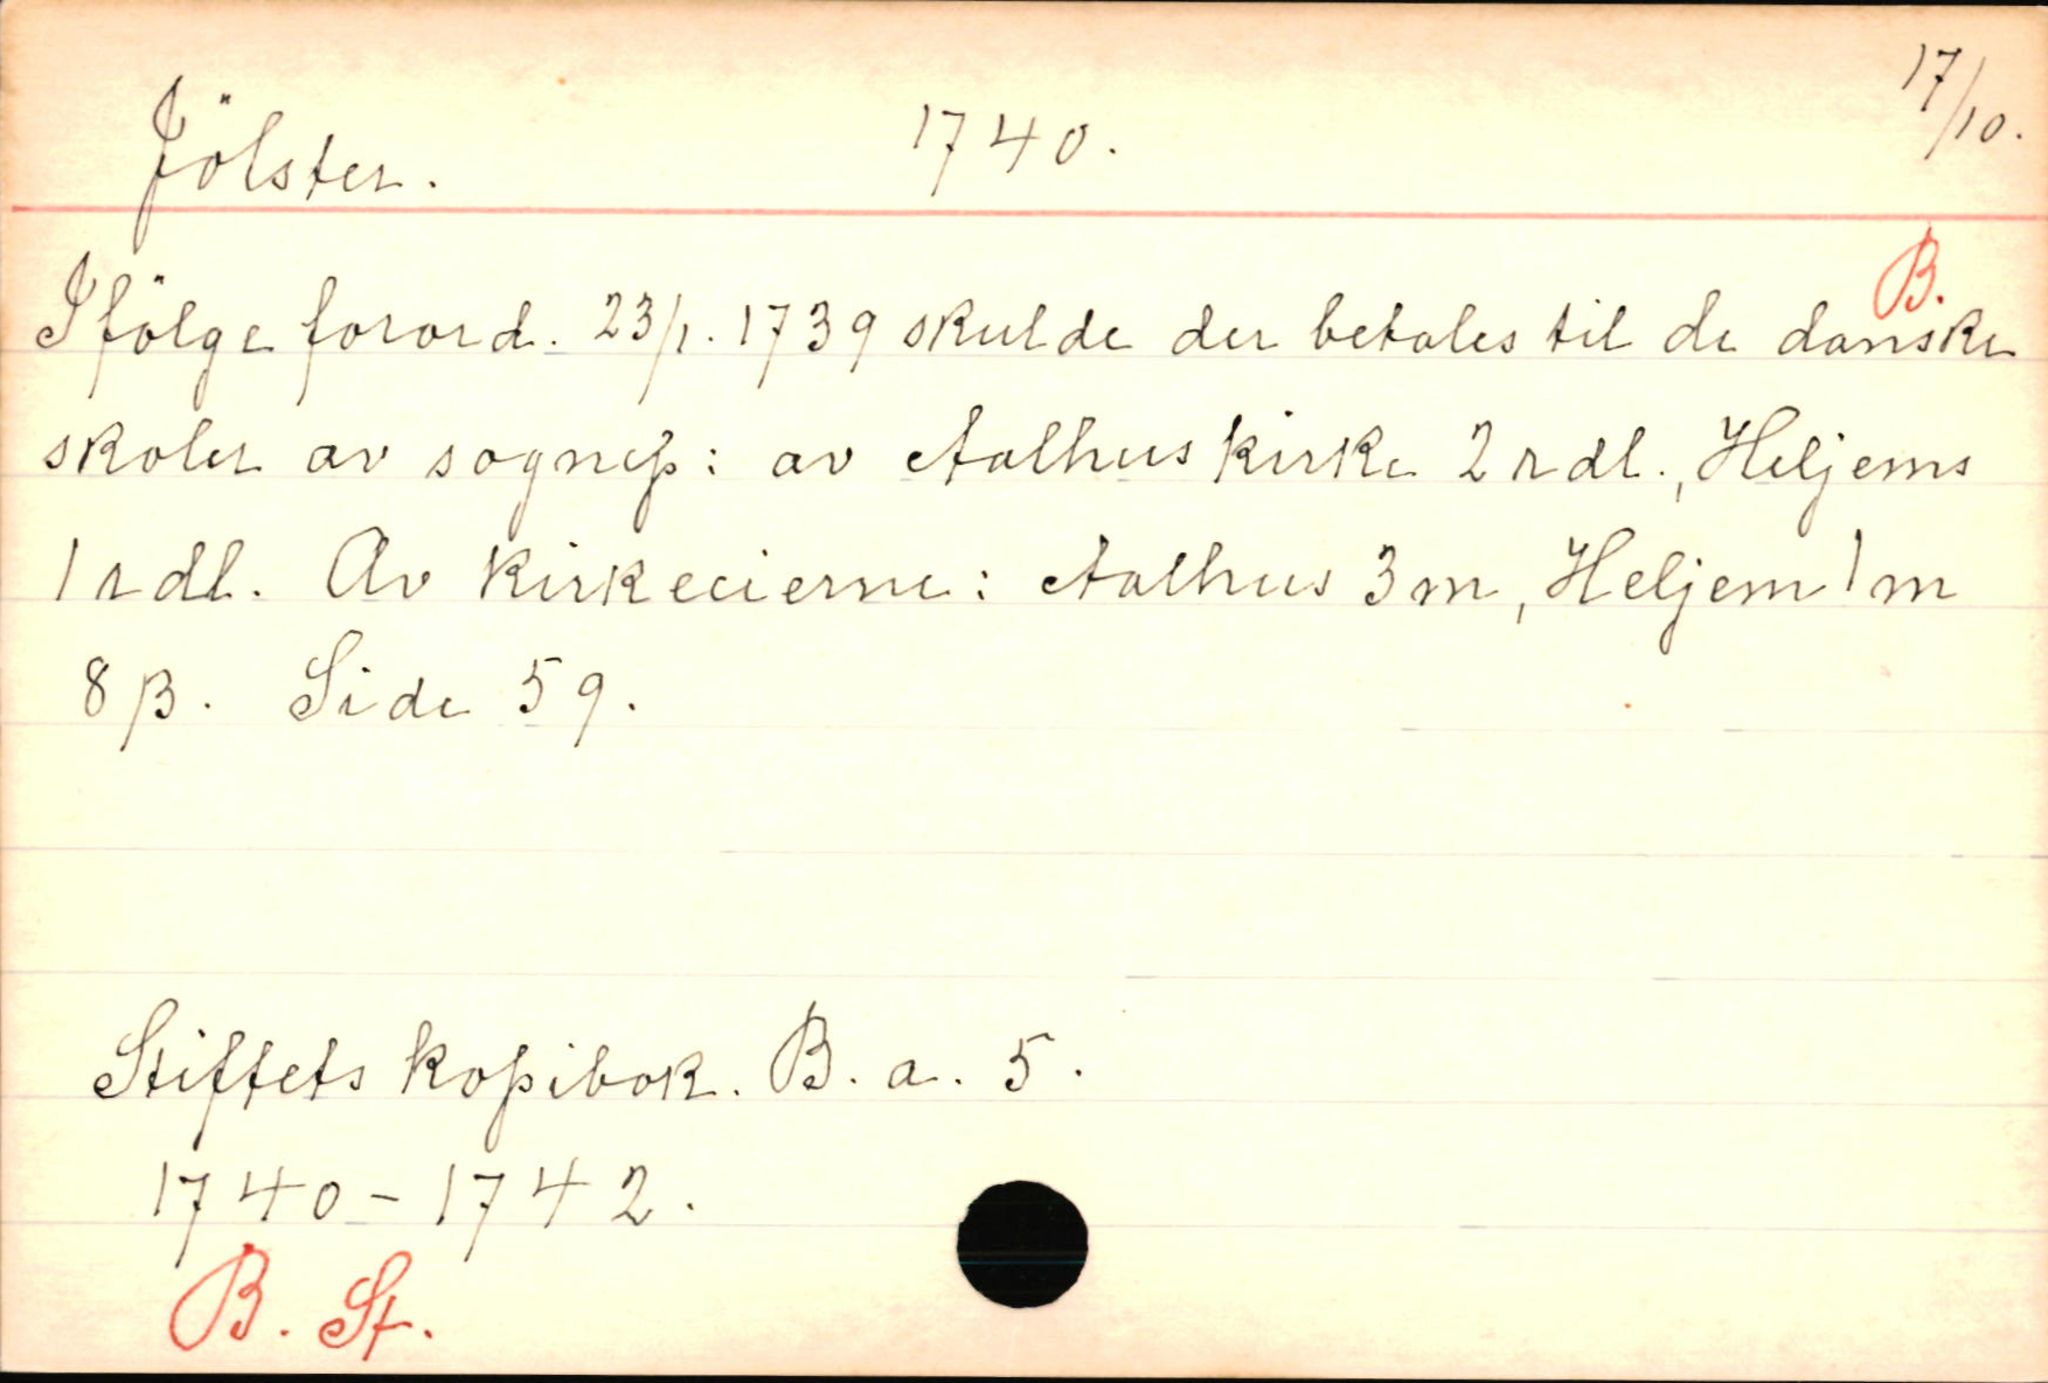 Jölster. 1740. 17/10.
B.
Ifölge forord. 23/1. 1739 skulde der betales til de danske
skoler av sognep: av Aalhus kirke 2 rdl., Heljems
1 rdl. Av kirkeeierne: Aalhus 3 m, Heljem 1 m
8 β. Side 59.
Stiftets kopibok. B. a. 5.
1740-1742.
B. St.